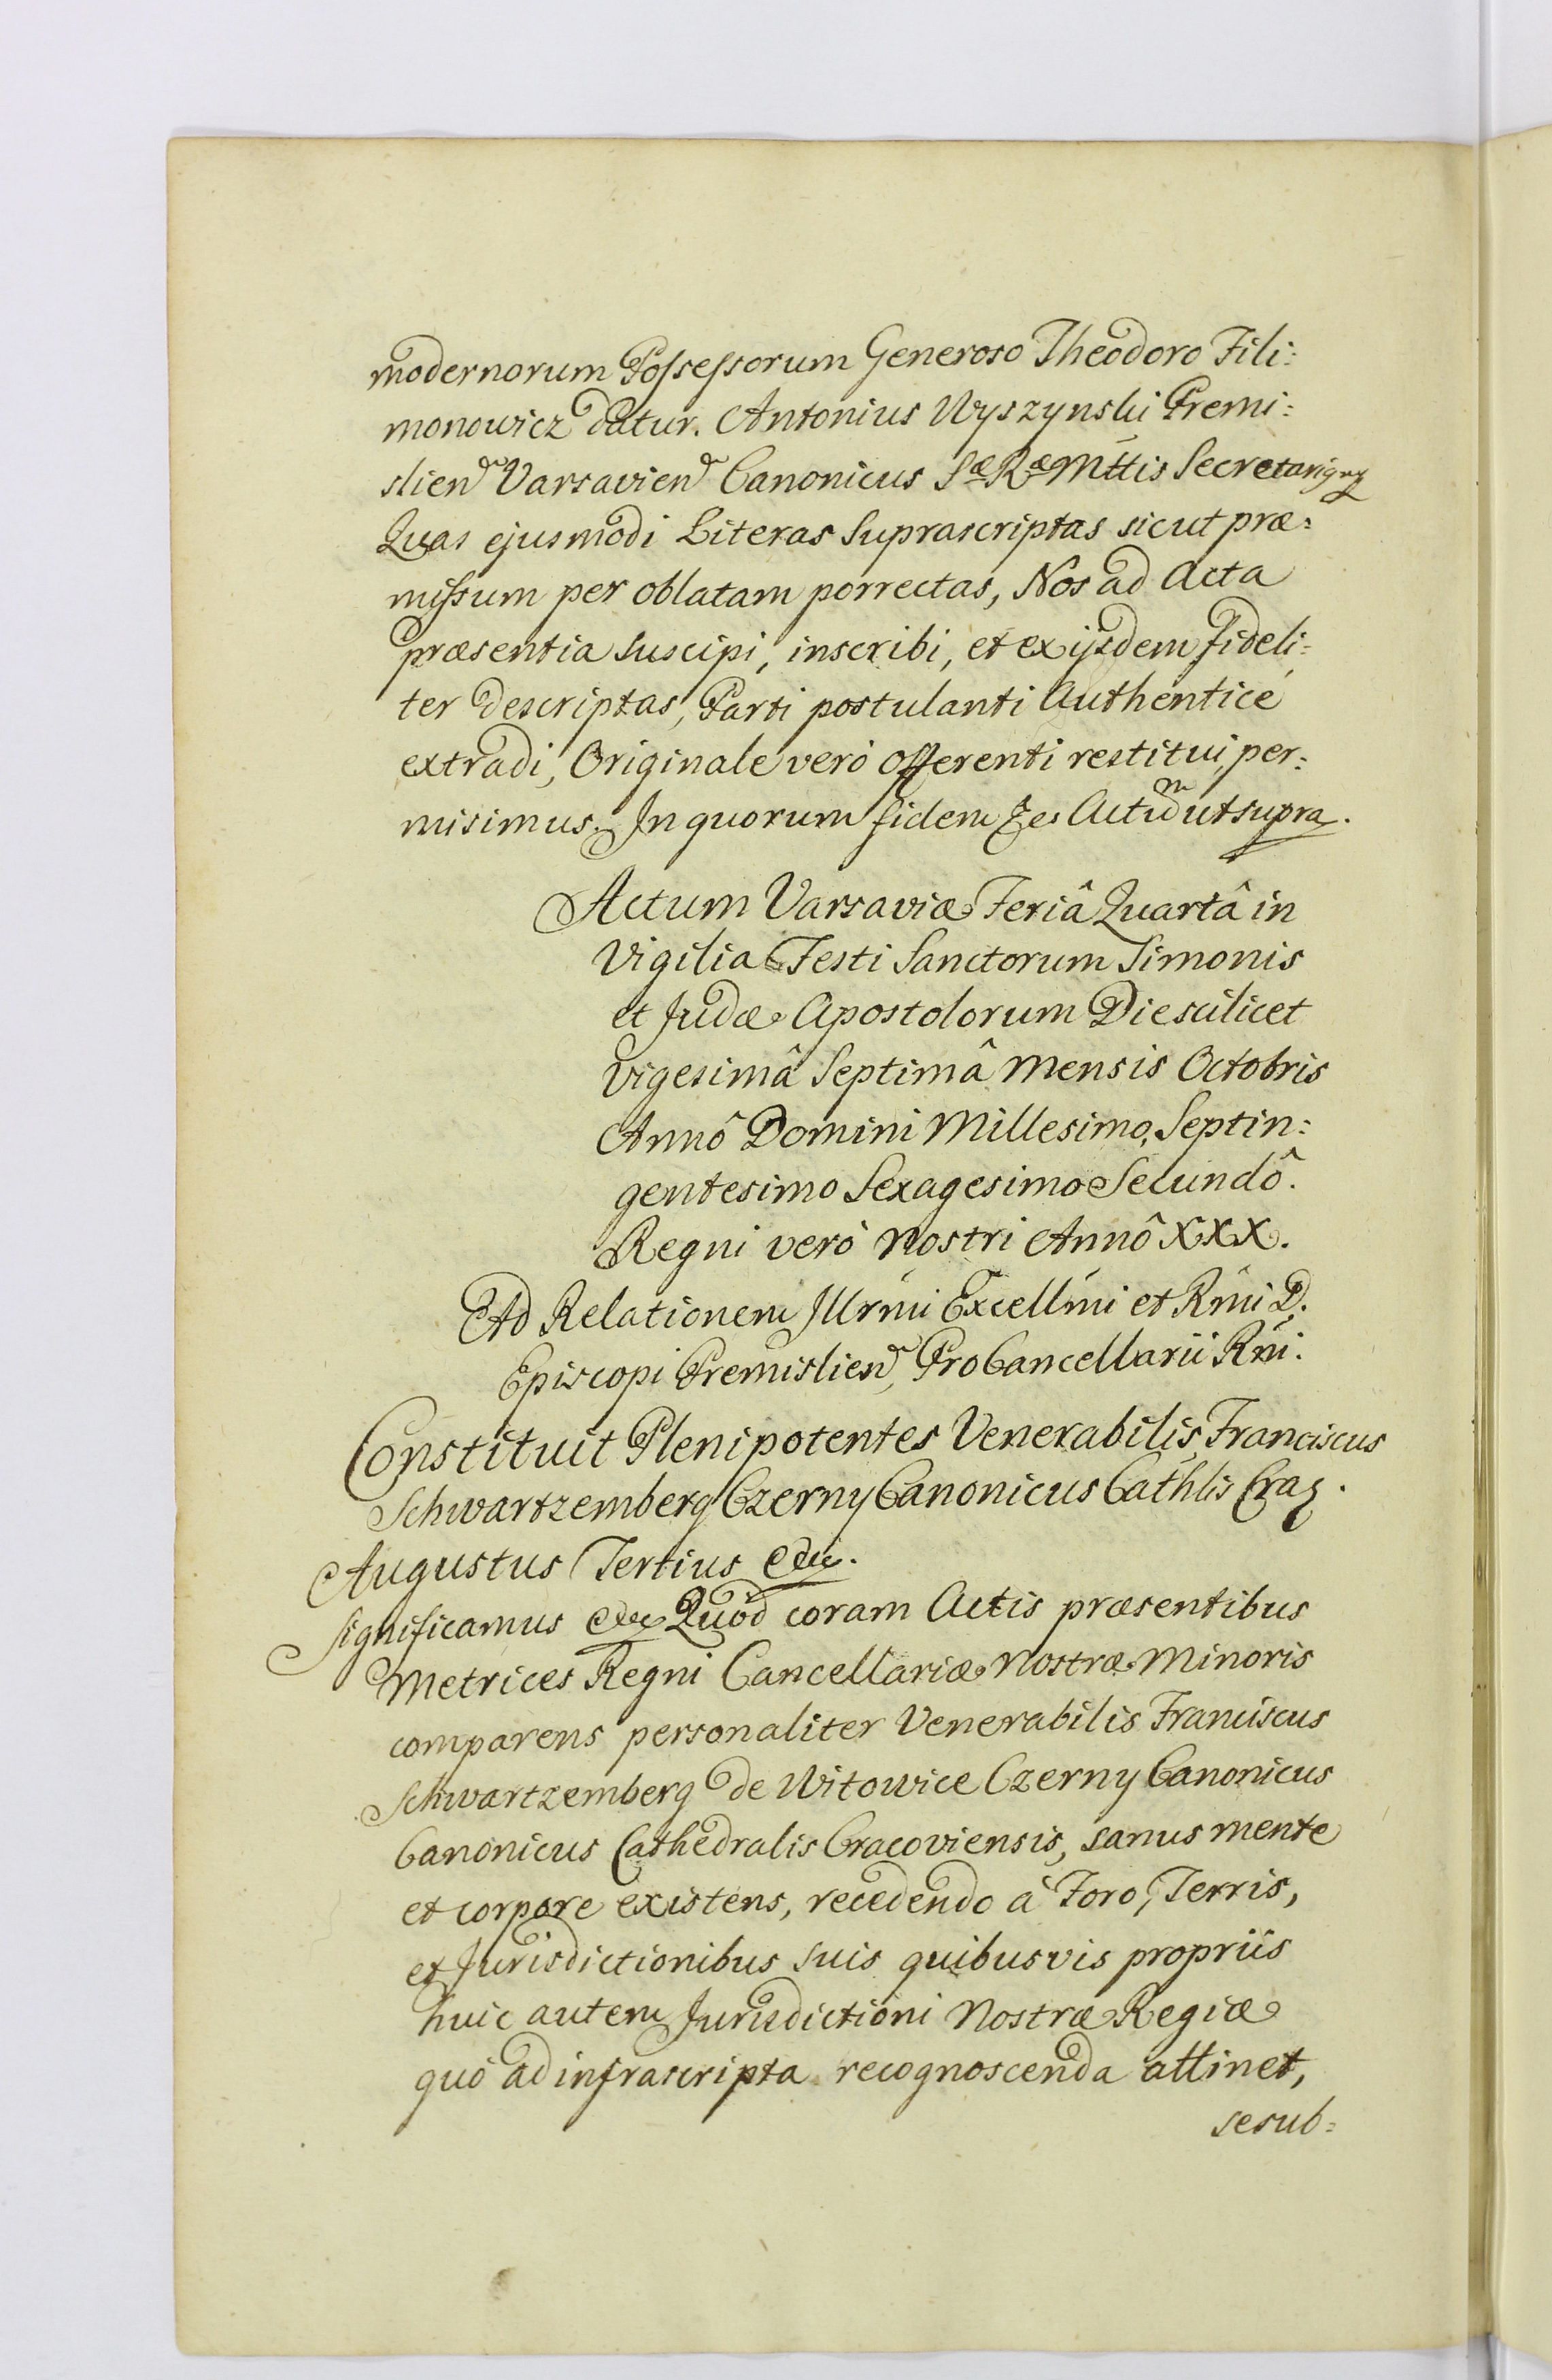 modernorum Possessorum Generoso Theodoro Fili:
monowicz datur. Antonius Wyszynski Premi:
slien Varsavien Canonicus Sæ Ræ Mttis Secretarius
Quas ejusmodi Literas Suprascriptas sicut præ:
missum per oblatam porrectas, Nos ad Acta
præsentia suscipi, inscribi, et ex ijsdem fideli:
ter descriptas, Parti postulanti Authenticè
extradi, Originale verò offerenti restitui, per:
misimus. In quorum fidem &c Actum ut supra.
Actum Varsaviæ Feriâ Quartâ in
Vigilia Festi Sanctorum Simonis
et Judæ Apostolorum Die scilicet
Vigesimâ Septimâ Mensis Octobris
Annô Domini Millesimo, Septin:
gentesimo Sexagesimo Secundô.
Regni verò Nostri Annô XXX.
Ad Relationem Illrmi Excellmi et Rmi D.
Episcopi Premislien, ProCancellarii Rni.
Constituit Plenipotentes Venerabilis Franciscus
Schwartzemberg Czerny Canonicus Cathlis Crac.
Augustus Tertius &c.
Significamus &c Quòd coram Actis præsentibus
Metrices Regni Cancellariæ Nostræ Minoris
comparens personaliter Venerabilis Franciscus
Schwartzemberg de Witowice Czerny Canonicus
Canonicus Cathedralis Cracoviensis, sanus mente
et corpore existens, recedendo à Foro, Terris,
et Jurisdictionibus suis quibusvis propriis
huic autem Jurisdictioni Nostræ Regiæ
quò ad infrascripta recognoscenda attinet,
se sub: